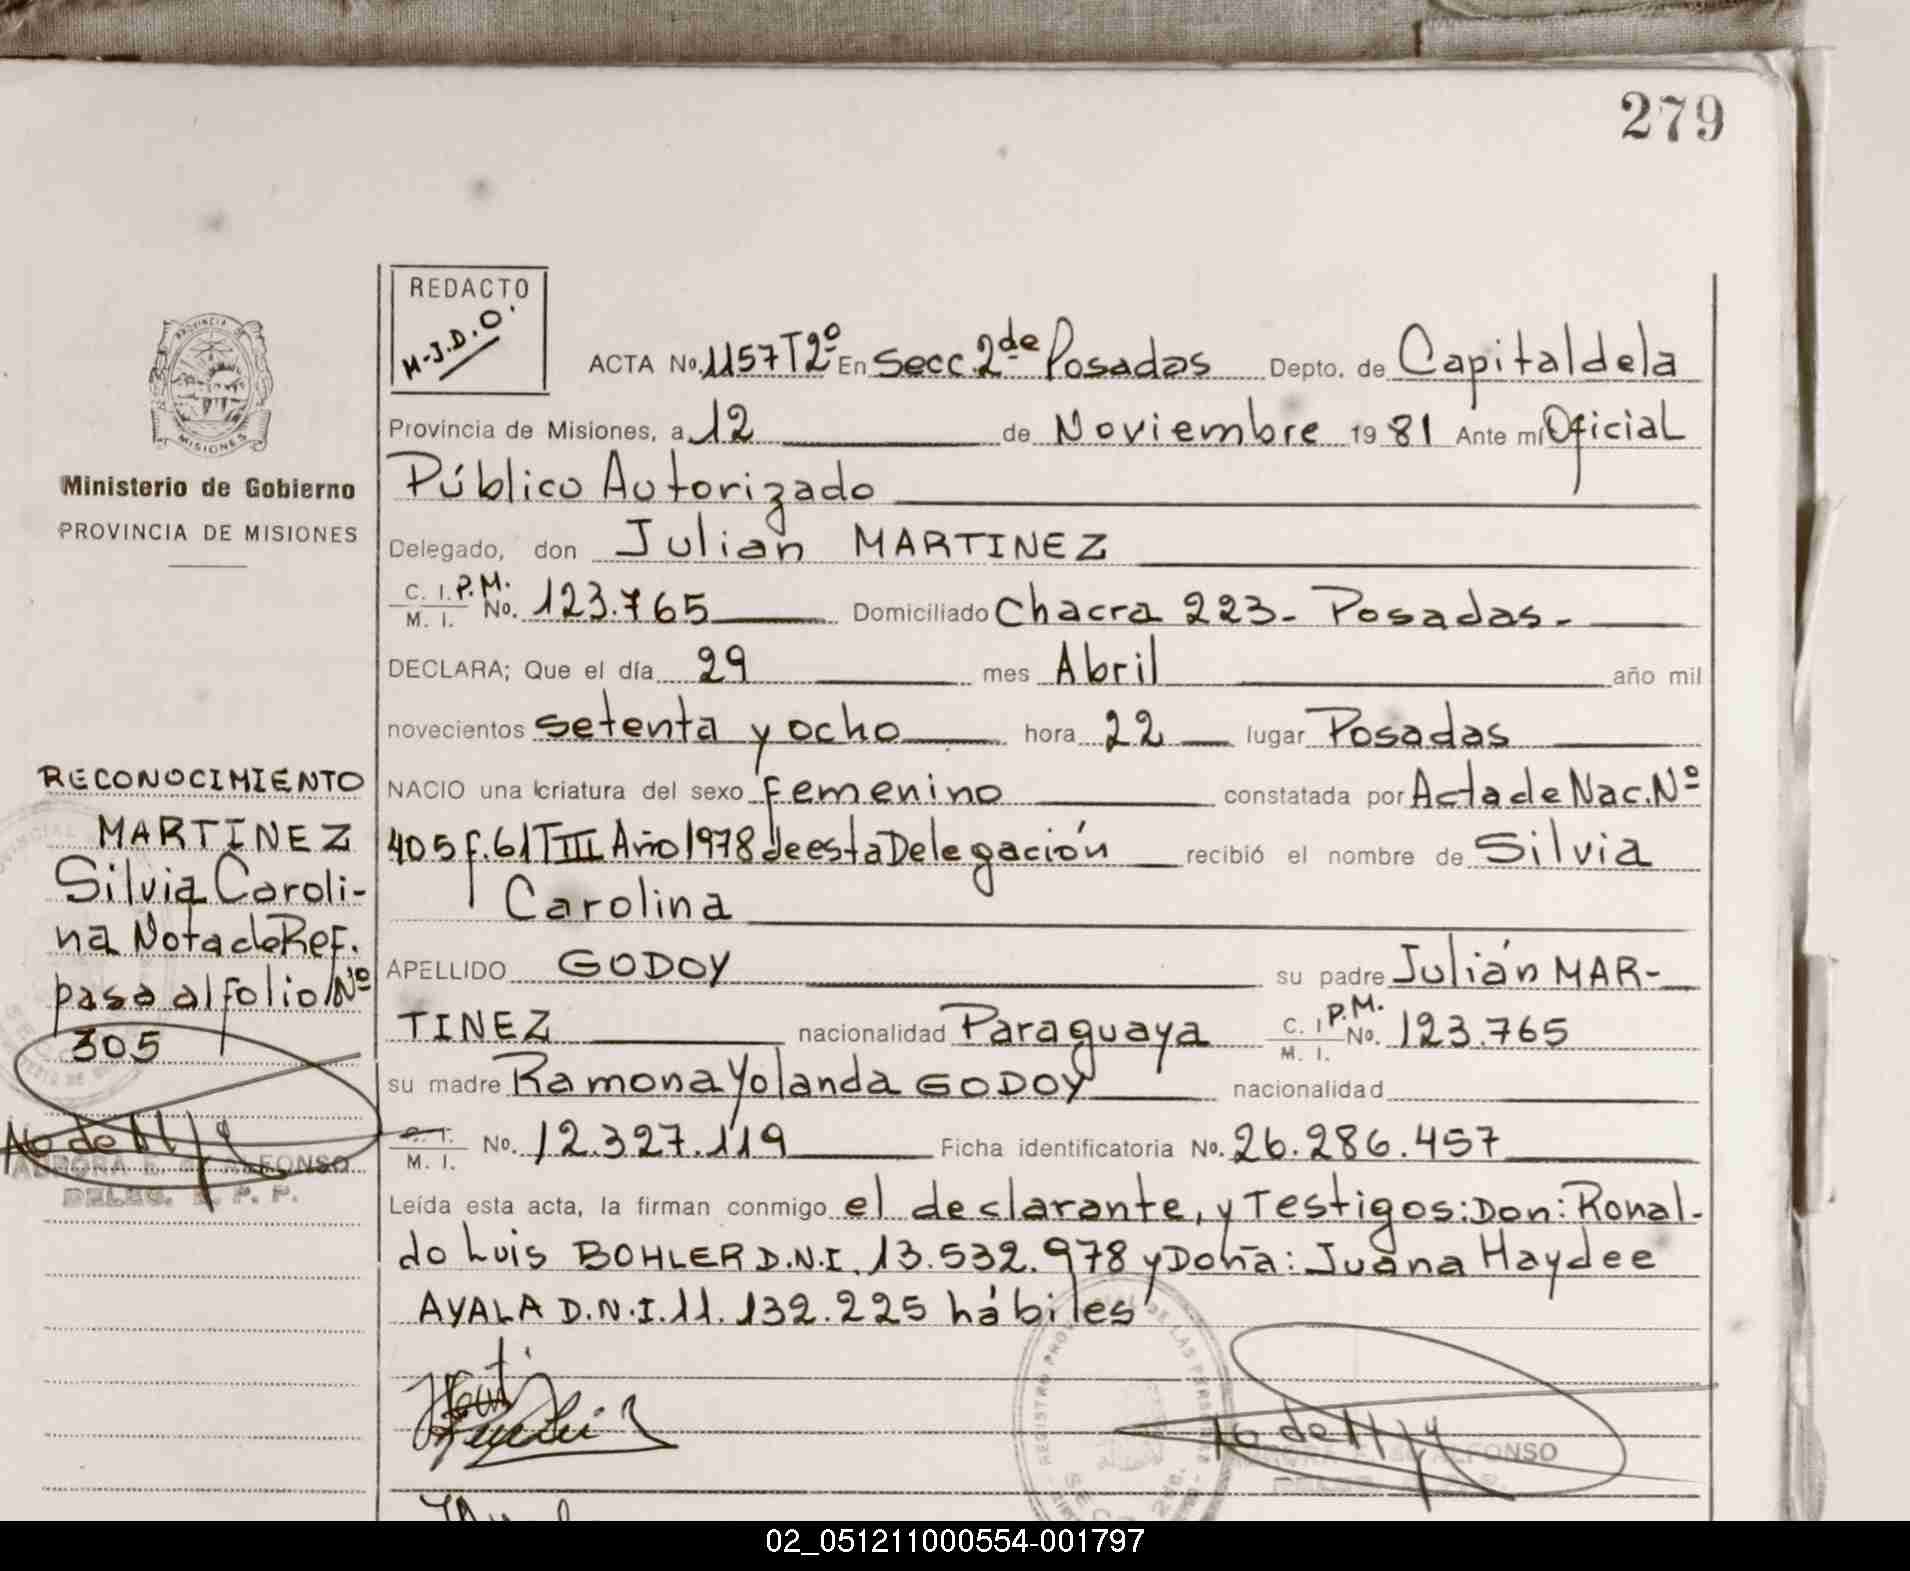 279
REDACTO
M-J.D.O.
ACTA No. 1157 T2º En Secc. 2de Posadas Depto. de Capital de la
Provincia de Misiones, a 12 de Noviembre 1981 Ante mí Oficial
Público Autorizado
Delegado, don Julian MARTINEZ
C. I. P.M. No. 123.765 Domiciliado Chacra 223- Posadas.-
M. I.
DECLARA; Que el día 29 mes Abril año mil
novecientos setenta y ocho hora 22 lugar Posadas
NACIO una criatura del sexo femenino constatada por Acta de Nac. Nº
405 f. 61 T III Año 1978 de esta Delegación recibió el nombre de Silvia
Carolina
APELLIDO GODOY su padre Julián MAR-
TINEZ nacionalidad Paraguaya C. I. P.M. No. 123.765
M. I.
su madre Ramona Yolanda GODOY nacionalidad
C. I. No. 12.327.119 Ficha identificatoria No. 26.286.457
M. I.
Leída esta acta, la firman conmigo el declarante, y Testigos: Don: Ronal-
do Luis BOHLER D.N.I. 13.532.978 y Doña: Juana Haydee
AYALA D.N.I. 11.132.225 hábiles
PROVINCIA DE
MISIONES
Ministerio de Gobierno
PROVINCIA DE MISIONES
RECONOCIMIENTO
MARTINEZ
Silvia Caroli-
na Nota de Ref.
pasa al folio Nº
305
AURORA E. DE ALFONSO
DELEG. R. P. P.
REGISTRO PROVINCIAL DE LAS PERSONAS
ALFONSO
02_051211000554-001797